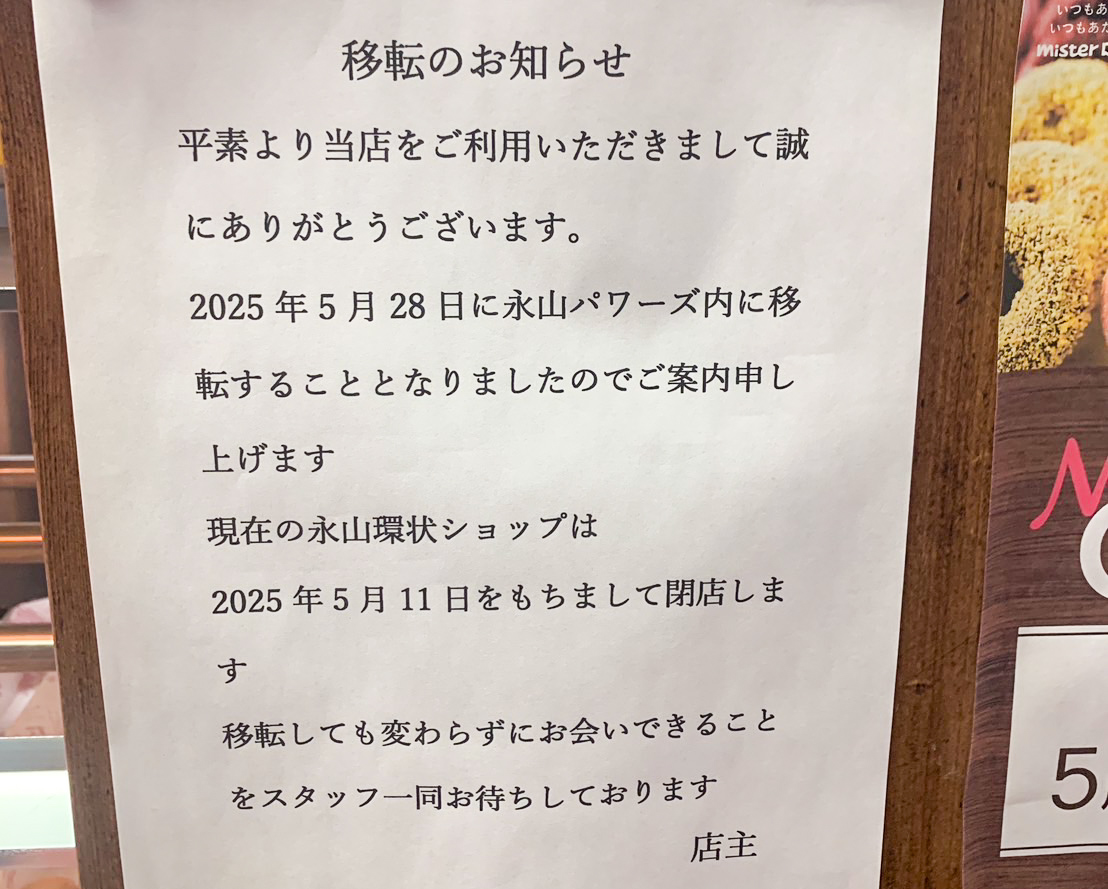 移転のお知らせ
平素より当店をご利用いただきまして誠
にありがとうございます。
2025年5月28日に永山パワーズ内に移
転することとなりましたのでご案内申し
上げます
現在の永山環状ショップは
2025年5月11日をもちまして閉店しま
す
移転しても変わらずにお会いできること
をスタッフ一同お待ちしております
店主
いつもあ
いつもあた
mister D
5